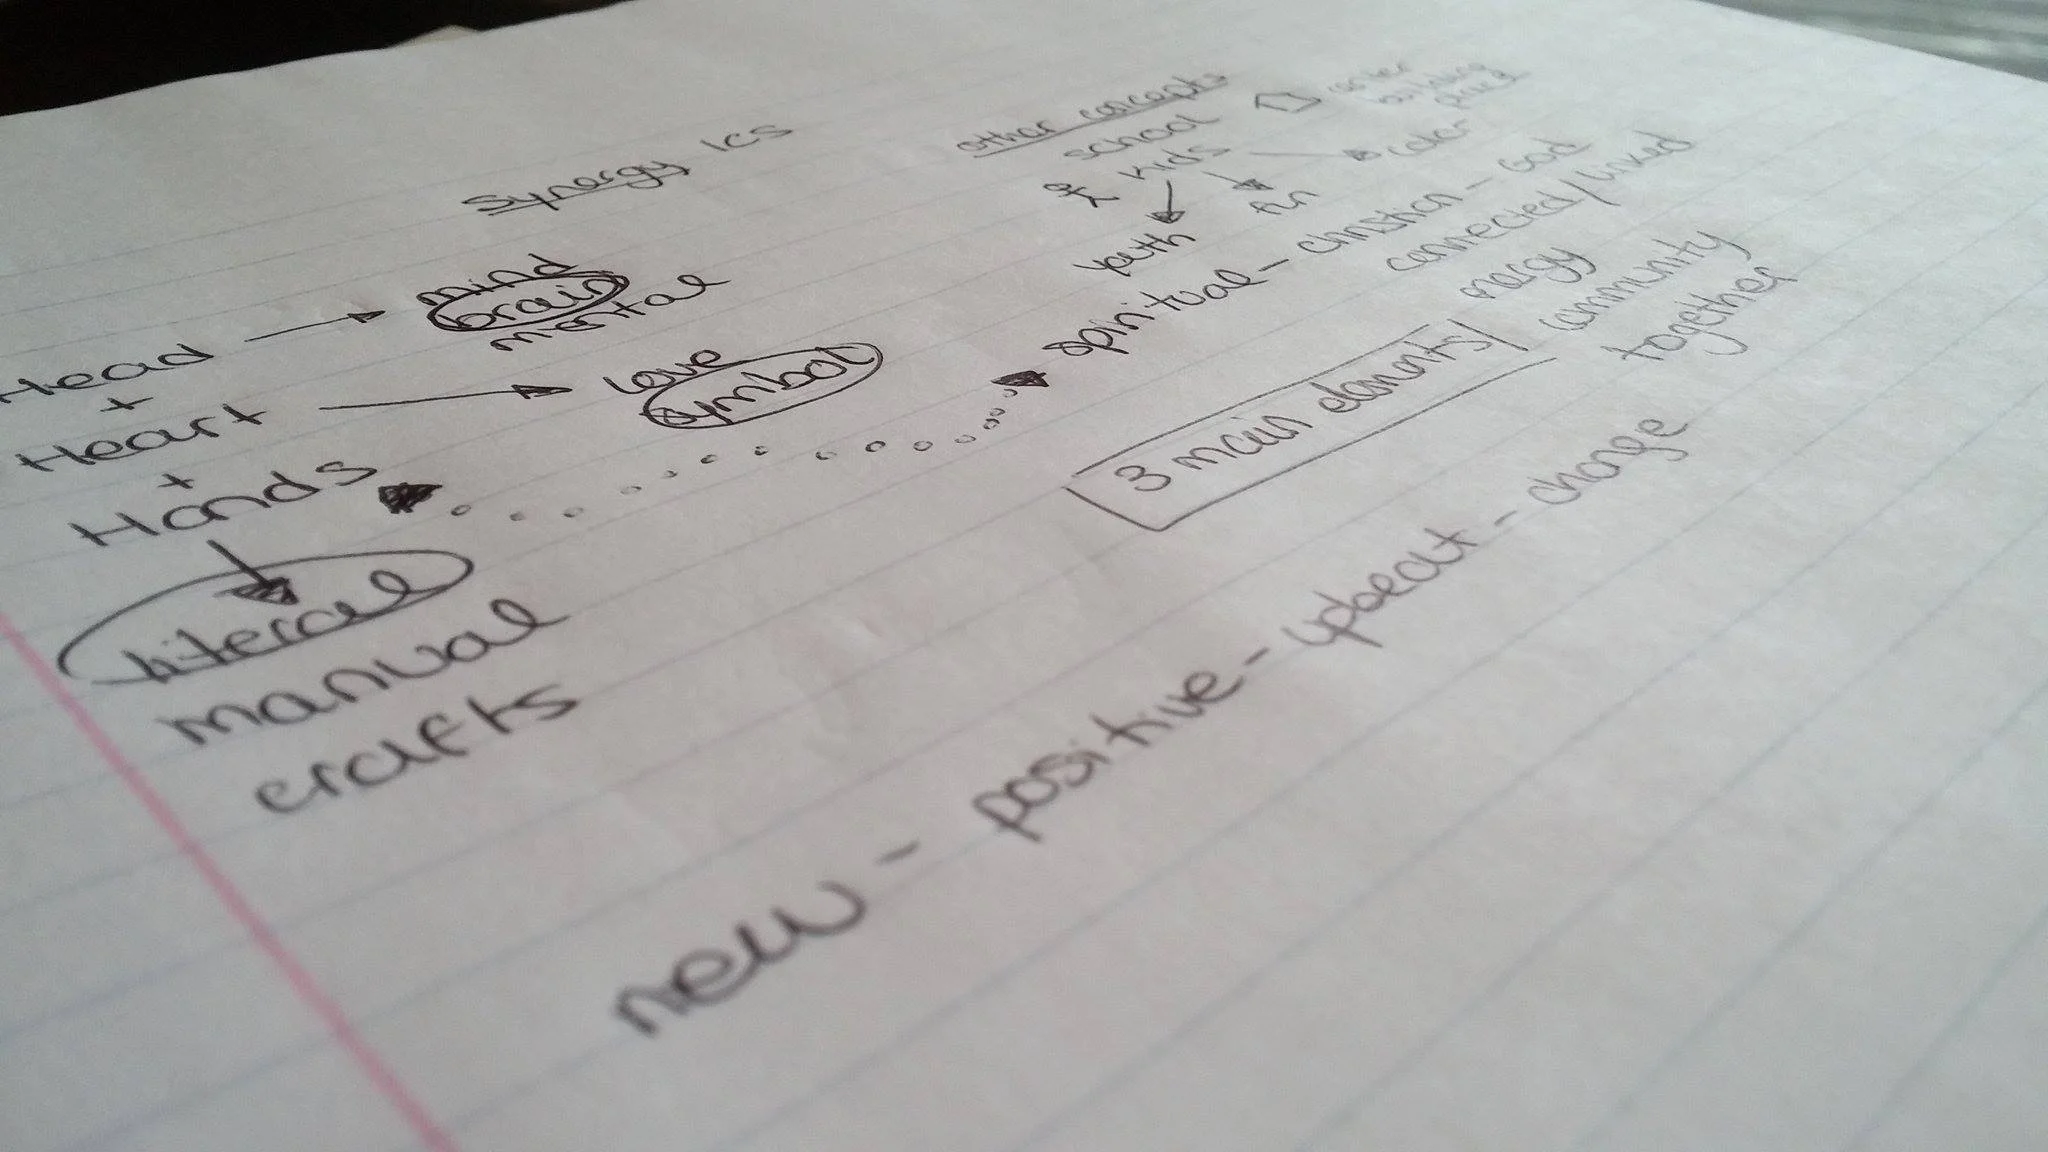 Synergy ICS
Head → mind
brain
mental
+
Heart → love
symbol
+
Hands
literal
manual
crafts
other concepts
school
kids → color
youth
fun
spiritual - christian - God
connected/linked
energy
community
together
3 main elements
new - positive - upbeat - change